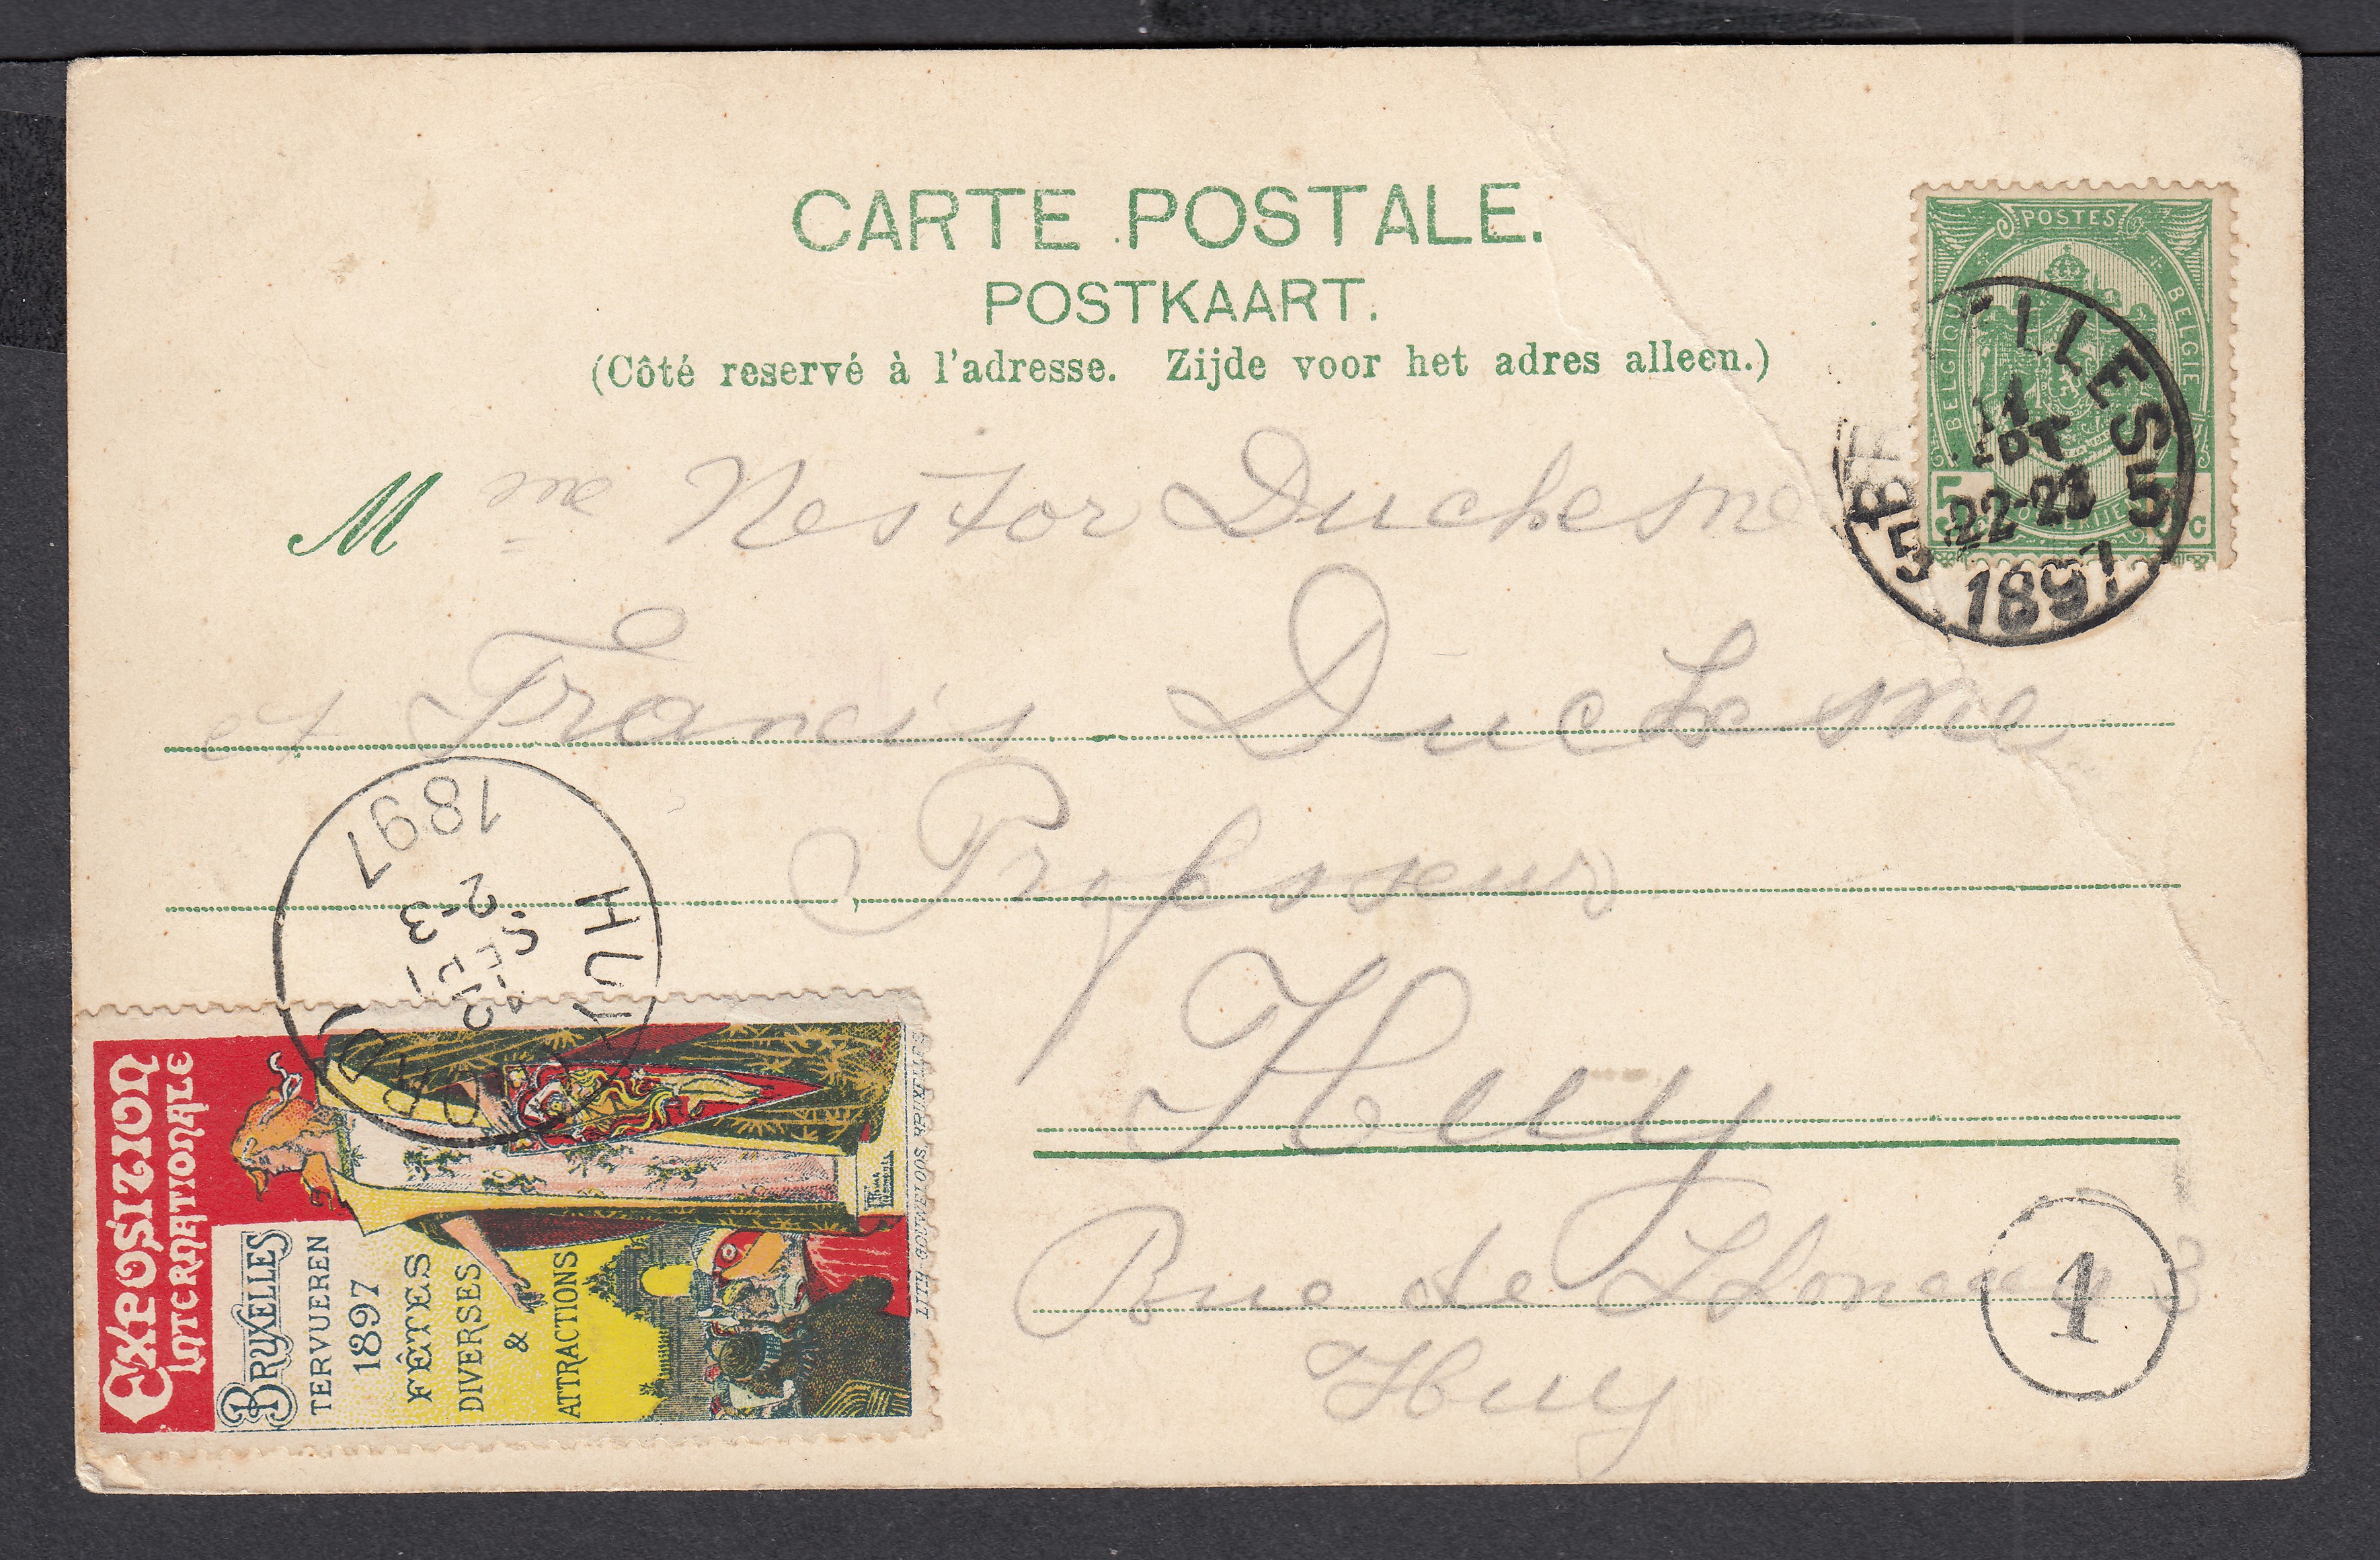 CARTE POSTALE.
POSTKAART.
(Côté reservé à l'adresse. Zijde voor het adres alleen.)
POSTES
BELGIQUE BELGIE
5 C
ELLES
11 SEPT
22-23
5 5
1897
Mme Nestor Duchesne
et Francis Duchesne
Professeur
Huy
Rue de 3
Huy
1
HUY (NORD)
2-3
1897
EXPOSITION
INTERNATIONALE
BRUXELLES
TERVUEREN
1897
FÊTES
DIVERSES
&
ATTRACTIONS
LITH. GOUWELOOS, BRUXELLES